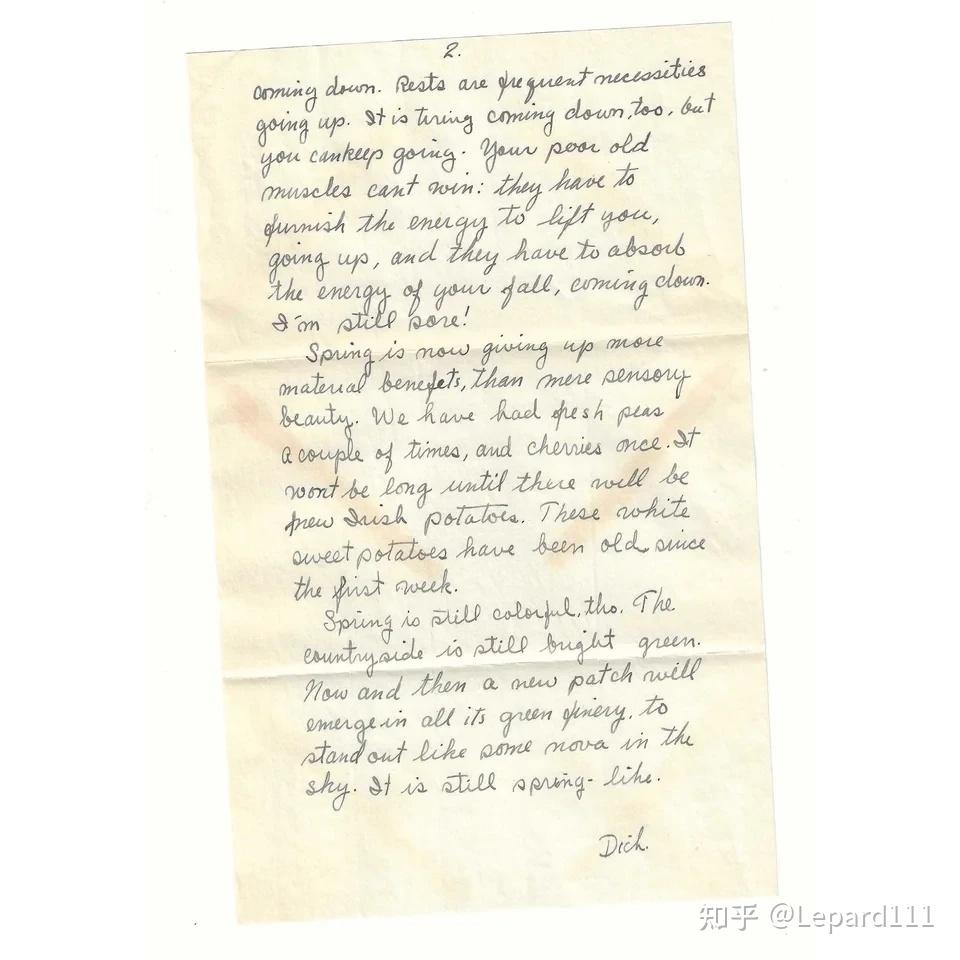 2.
coming down. Rests are frequent necessities
going up. It is tiring coming down, too, but
you can keep going. Your poor old
muscles cant win: they have to
furnish the energy to lift you,
going up, and they have to absorb
the energy of your fall, coming down.
I'm still sore!
Spring is now giving up more
material benefets, than mere sensory
beauty. We have had fresh peas
a couple of times, and cherries once. It
wont be long until there will be
new Irish potatoes. These white
sweet potatoes have been old since
the first week.
Spring is still colorful, tho. The
countryside is still bright green.
Now and then a new patch will
emerge in all its green finery, to
stand out like some nova in the
sky. It is still spring-like.
Dick.
知乎 @Lepard111